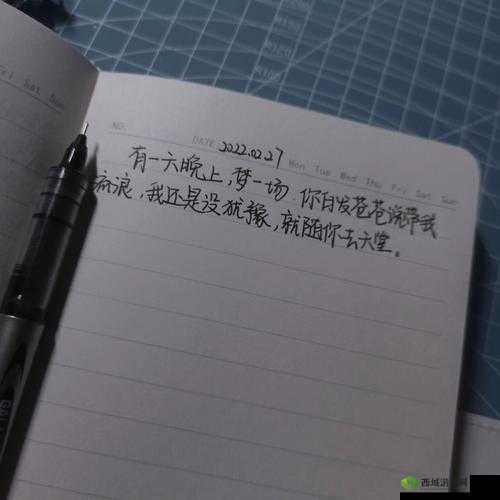 Fri Sat Sun
NO.
DATE 2022.02.27
Mon Tue Wed Thu Fri Sat Sun
有一天晚上,梦一场 你白发苍苍说带我
流浪,我还是没犹豫,就随你去天堂。